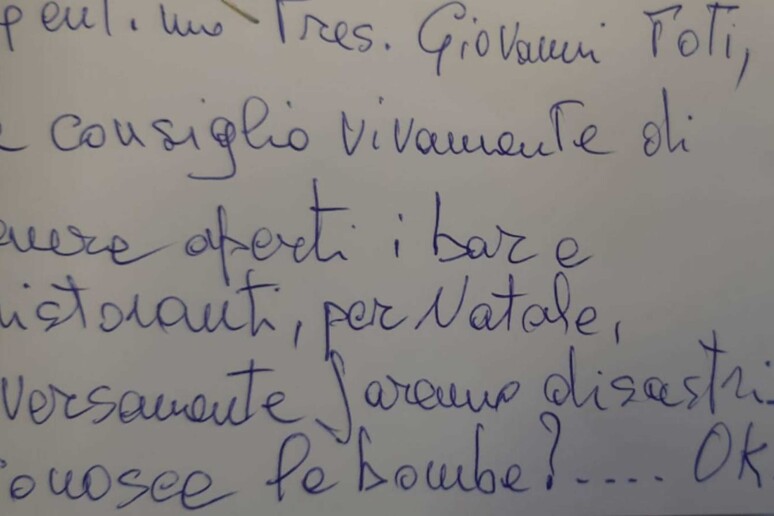 gent.mo Pres. Giovanni Toti,
consiglio vivamente di
aperti i bar e
ristoranti, per Natale,
versamente faremo disastri.
onosce le bombe?..... OK